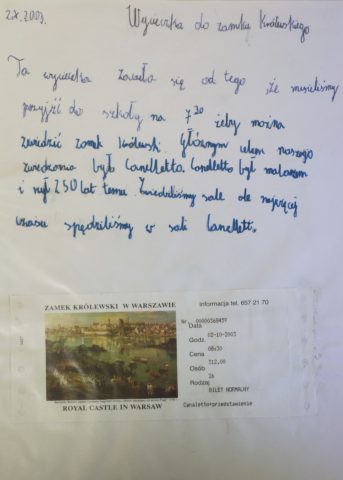 2.X.2003.
Wycieczka do zamku Królewskiego
Ta wycieczka zaczęła się od tego, że musieliśmy
przyjść do szkoły na 7³⁰ żeby można
zwiedzić zamek królewski. Głównym celem naszego
zwiedzania było Canelletto. Canelletto był malarzem
i żył 250 lat temu. Zwiedziliśmy sale ale najwięcej
czasu spędziliśmy w sali Canellett.
ZAMEK KRÓLEWSKI W WARSZAWIE
ROYAL CASTLE IN WARSAW
Informacja tel. 657 21 70
Nr. 00000368459
Data
02-10-2003
Godz.
08:30
Cena
312,00
Osób
26
Rodzaj
BILET NORMALNY
Canaletto+przedstawienie